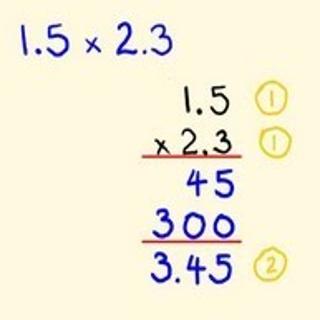 1.5 × 2.3
1.5 1
× 2.3 1
45
300
3.45 2